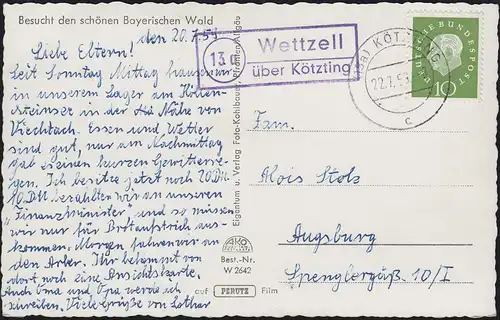 Besucht den schönen Bayerischen Wald
den 20.7.59
Liebe Eltern!
Seit Sonntag Mittag hausen wir
in unserem Lager am Höllen-
steinsee in der Nähe von
Viechtach. Essen und Wetter
sind gut, nur am Nachmittag
gab es einen kurzen Gewitterre-
gen. Ich besitze jetzt noch 20 DM.
10 DM bezahlten wir an unseren
"Finanzminister", und so müssen
wir nur für Brotaufstrich auf-
kommen. Morgen fahren wir an
den Arber. Ihr bekommt von
dort noch eine Ansichtskarte.
Auch Oma und Opa werde ich
schreiben. Viele Grüße von Lothar
Eigentum u. Verlag Foto-Kohlbauer, Pfronten/Allgäu
Best.-Nr.
W 2642
auf PERUTZ Film
Wettzell
über Kötzting
KÖTZTING
c
DEUTSCHE BUNDESPOST
10
Fam.
Alois Stolz
Augsburg
Spenglergäß. 10/I